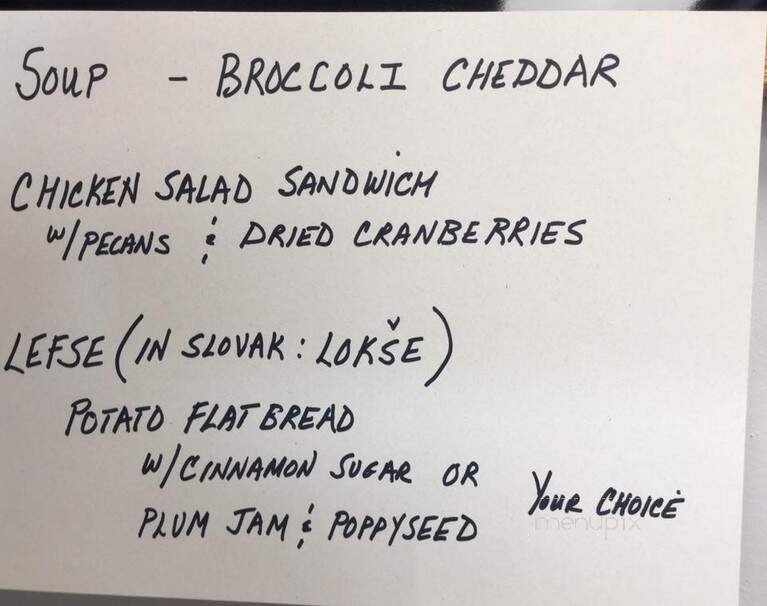 SOUP - BROCCOLI CHEDDAR
CHICKEN SALAD SANDWICH
W/PECANS & DRIED CRANBERRIES
LEFSE (IN SLOVAK: LOKŠE)
POTATO FLATBREAD
W/CINNAMON SUGAR OR
PLUM JAM & POPPYSEED
YOUR CHOICE
menupix